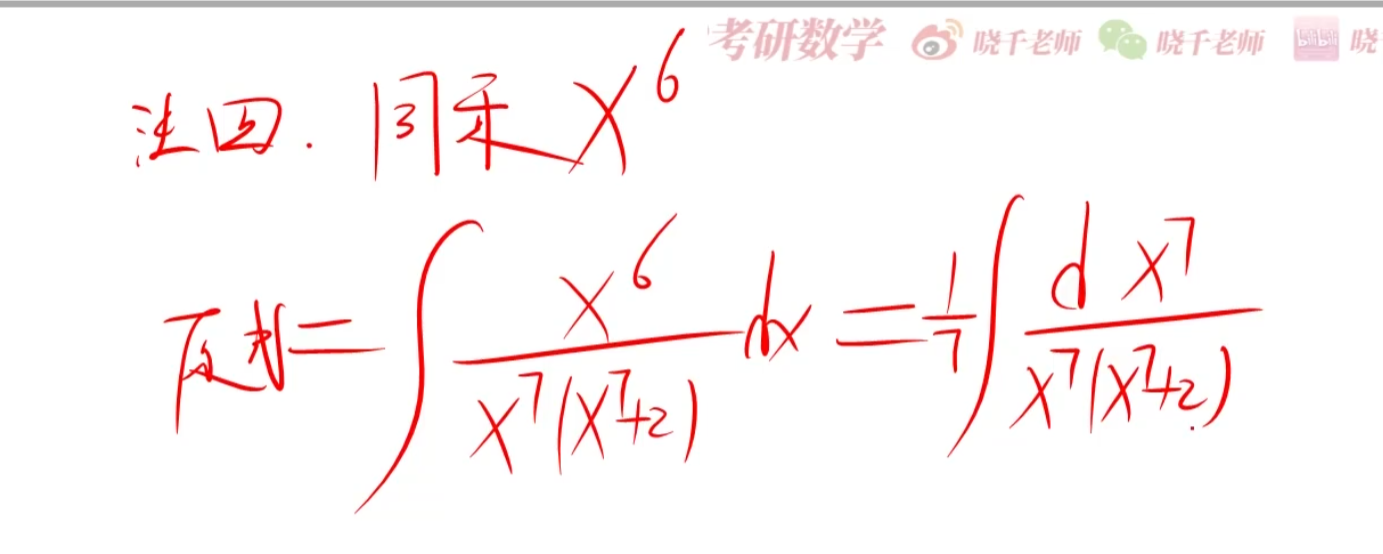 考研数学 晓千老师 晓千老师 bilibili 晓
法四. 同乘 x^6
原式 = ∫ x^6 / (x^7(x^7+2)) dx = 1/7 ∫ d x^7 / (x^7(x^7+2))